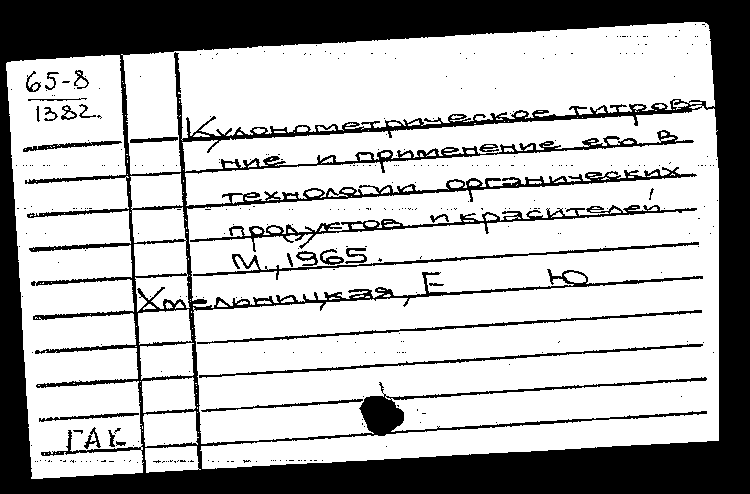 65-8
1382.
Кулонометрическое титрова
ние и применение его в
технологии органических
продуктов и красителей.
М., 1965.
Хмельницкая, Е Ю
ГАК